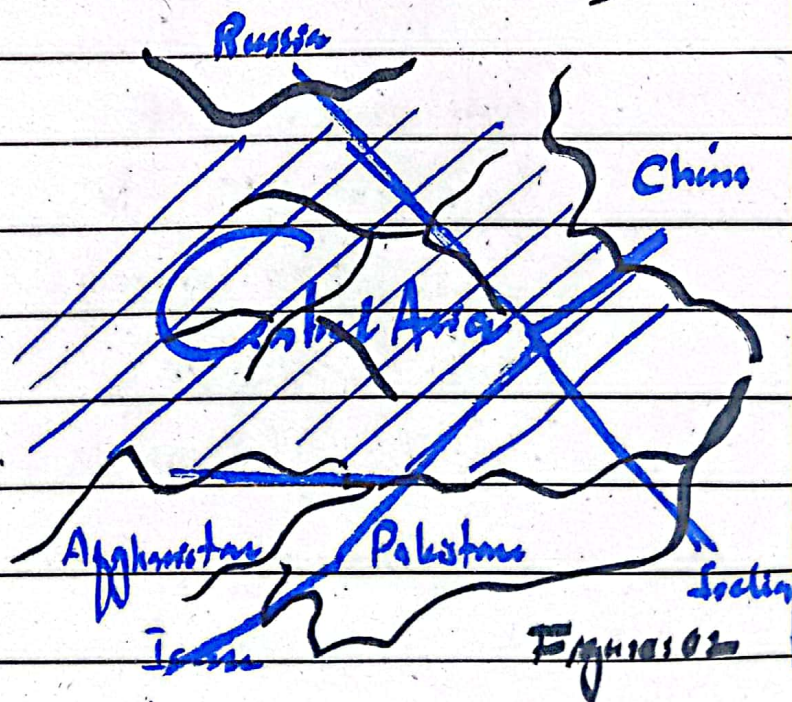 Russia
China
Central Asia
Afghanistan Pakistan
India
Iran
Figure: 02